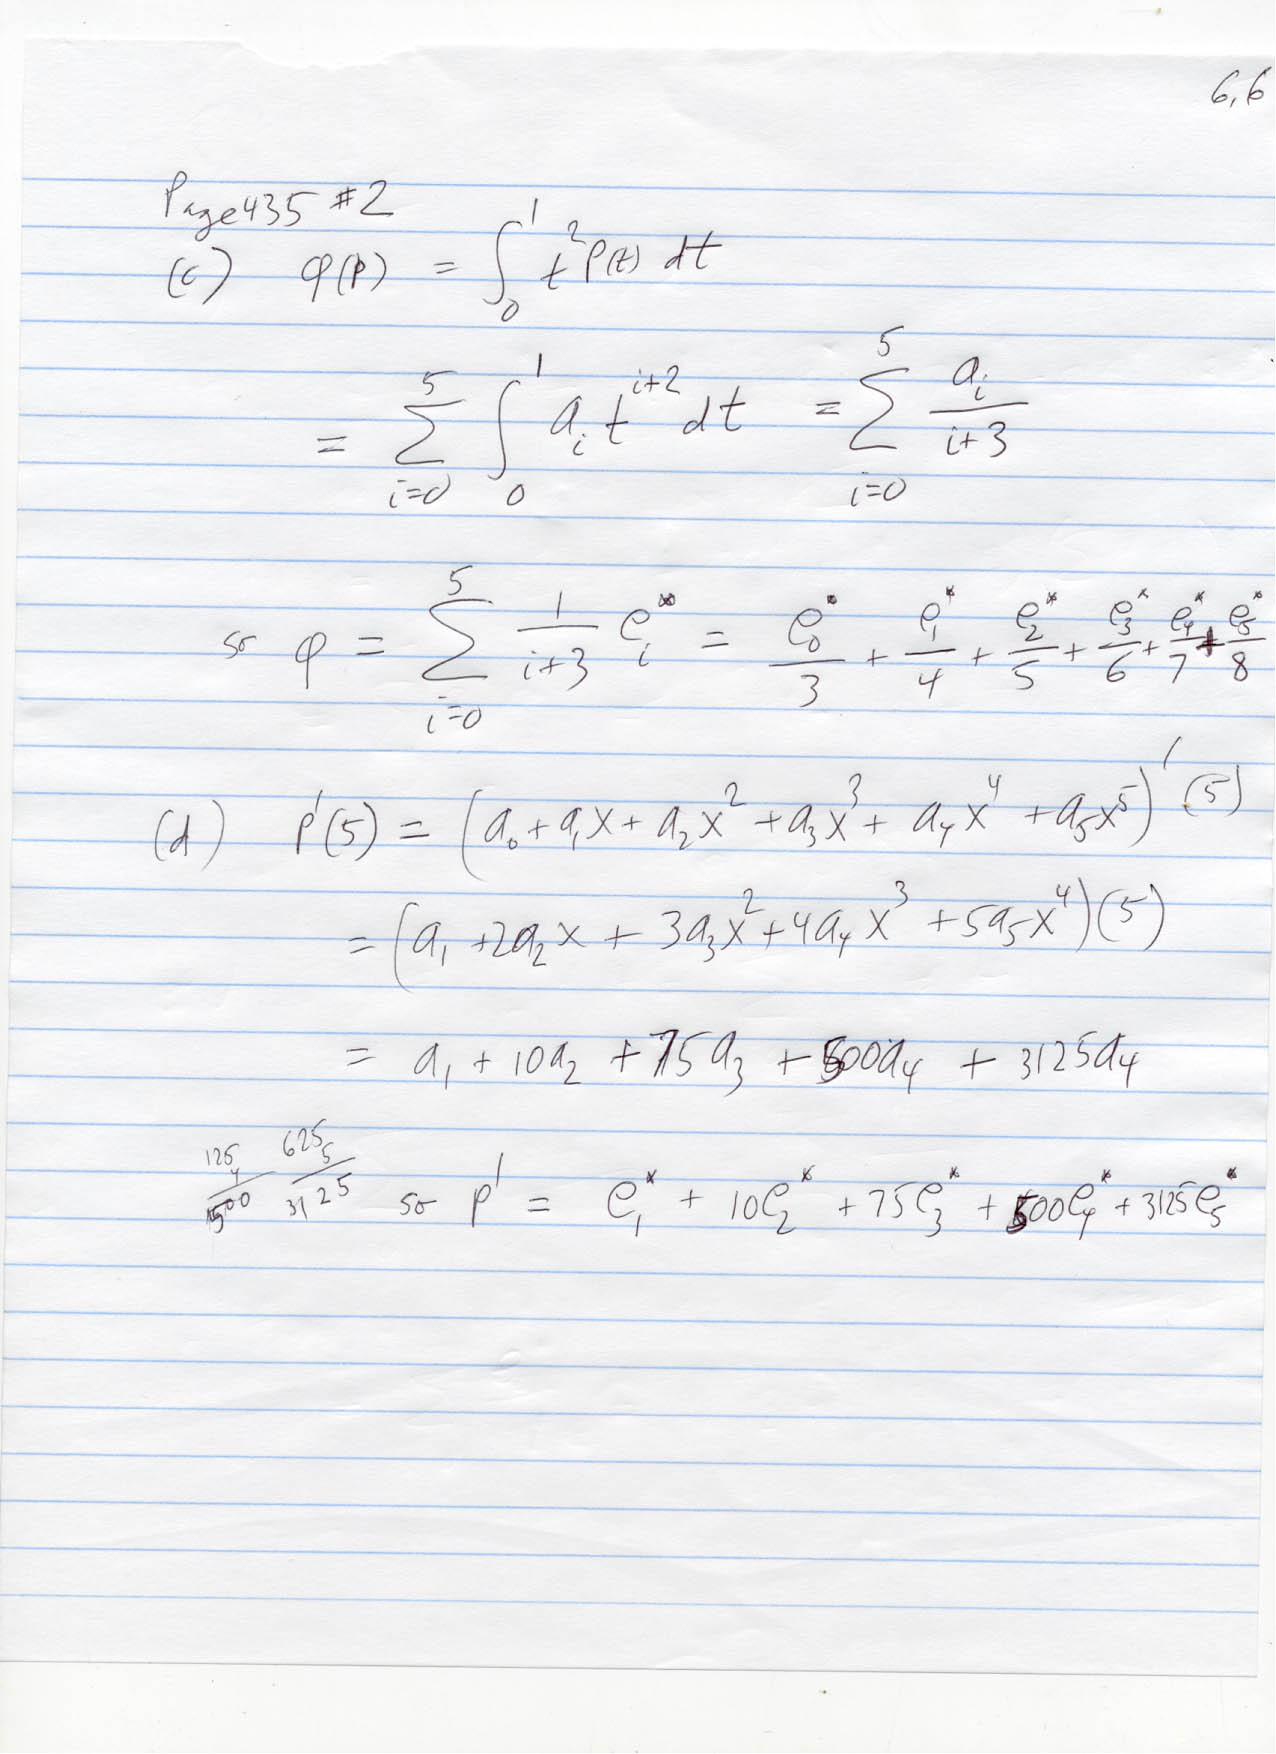 6.6
Page 435 #2
(c) φ(p) = ∫₀¹ t² p(t) dt
= ∑_{i=0}^{5} ∫₀¹ aᵢ t^{i+2} dt = ∑_{i=0}^{5} aᵢ/(i+3)
so φ = ∑_{i=0}^{5} 1/(i+3) eᵢ* = e₀*/3 + e₁*/4 + e₂*/5 + e₃*/6 + e₄*/7 + e₅*/8
(d) p'(5) = (a₀ + a₁x + a₂x² + a₃x³ + a₄x⁴ + a₅x⁵)'(5)
= (a₁ + 2a₂x + 3a₃x² + 4a₄x³ + 5a₅x⁴)(5)
= a₁ + 10a₂ + 75a₃ + 500a₄ + 3125a₄
125 625
4 5
500 3125
so p' = e₁* + 10e₂* + 75e₃* + 500e₄* + 3125e₅*